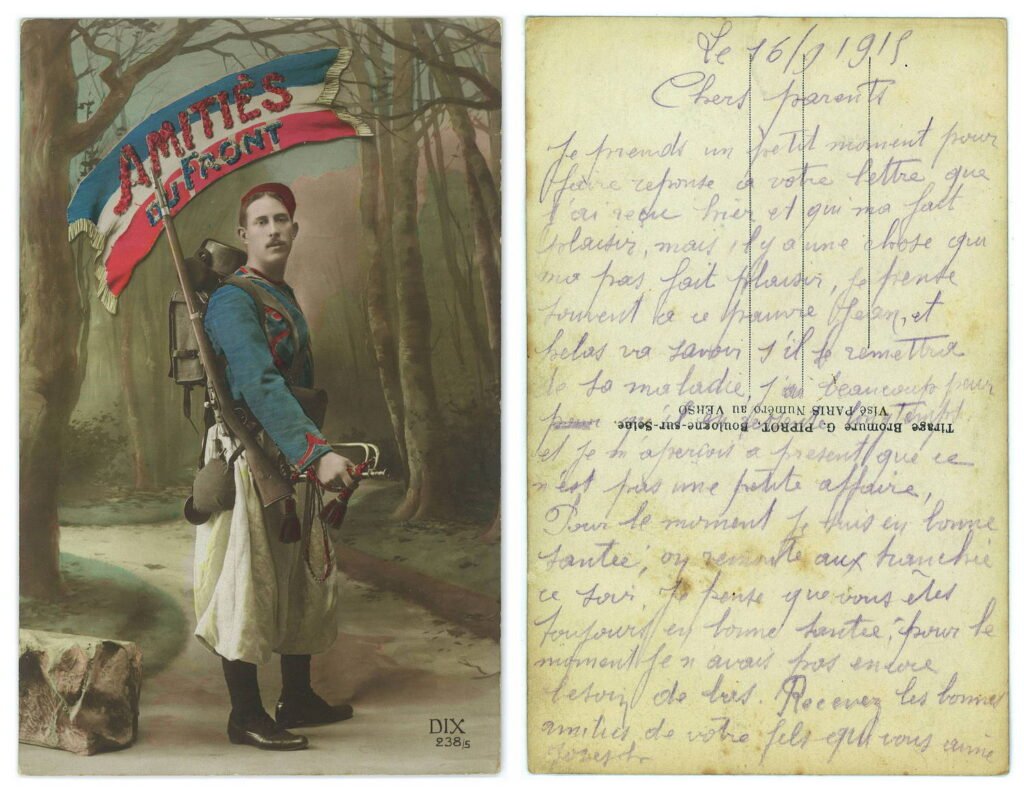 AMITIÉS
DU FRONT
DIX
238/5
Le 16/9 1915
Chers parents
Je prends un petit moment pour
faire reponse a votre lettre que
j'ai reçu hier et qui ma fait
plaisir, mais il y a une chose qui
ma pas fait plaisir, je pense
souvent a ce pauvre Jean, et
helas va savoir s'il se remettra
de sa maladie, j'ai beaucoup peur
Tirage Bromure G. PIPROT, Boulogne-sur-Seine.
Visé PARIS Numéro au VERSO
et je m'aperçois a present que ce
n'est pas une petite affaire,
Pour le moment je suis en bonne
santée, on remonte aux tranchée
ce soir. Je pense que vous êtes
toujours en bonne santée, pour le
moment je n avais pas encore
besoin de bas. Recevez les bonnes
amities de votre fils qui vous aime